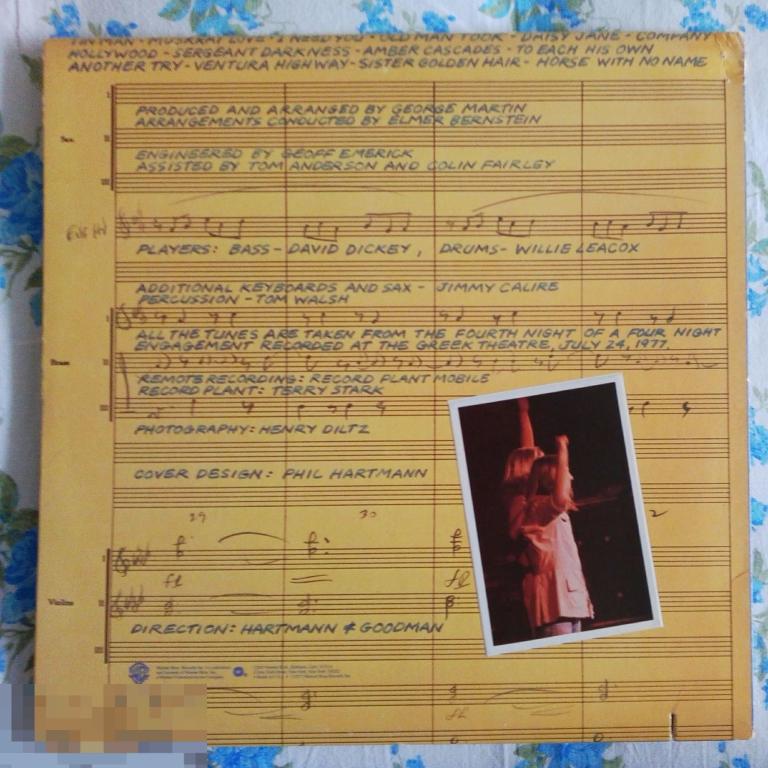 TIN MAN - MUSKRAT LOVE - I NEED YOU - OLD MAN TOOK - DAISY JANE - COMPANY
HOLLYWOOD - SERGEANT DARKNESS - AMBER CASCADES - TO EACH HIS OWN
ANOTHER TRY - VENTURA HIGHWAY - SISTER GOLDEN HAIR - HORSE WITH NO NAME
I
PRODUCED AND ARRANGED BY GEORGE MARTIN
ARRANGEMENTS CONDUCTED BY ELMER BERNSTEIN
Sax.
II
ENGINEERED BY GEOFF EMERICK
ASSISTED BY TOM ANDERSON AND COLIN FAIRLEY
III
PLAYERS: BASS - DAVID DICKEY, DRUMS - WILLIE LEACOX
ADDITIONAL KEYBOARDS AND SAX - JIMMY CALIRE
PERCUSSION - TOM WALSH
I
ALL THE TUNES ARE TAKEN FROM THE FOURTH NIGHT OF A FOUR NIGHT
ENGAGEMENT RECORDED AT THE GREEK THEATRE, JULY 24, 1977.
Brass
II
REMOTE RECORDING: RECORD PLANT MOBILE
RECORD PLANT: TERRY STARK
III
PHOTOGRAPHY: HENRY DILTZ
COVER DESIGN: PHIL HARTMANN
29 30 2
I
ff ff
Violins
II
DIRECTION: HARTMANN & GOODMAN
III